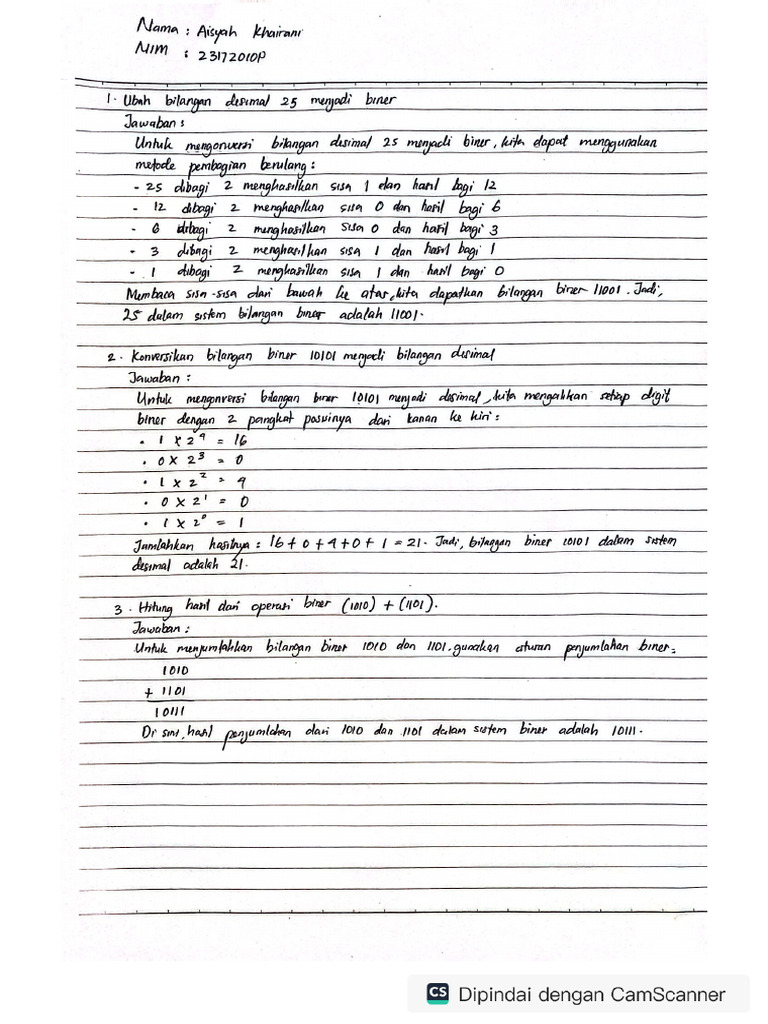 Nama : Aisyah Khairani
NIM : 23172010P
1. Ubah bilangan desimal 25 menjadi biner
Jawaban :
Untuk mengonversi bilangan desimal 25 menjadi biner, kita dapat menggunakan
metode pembagian berulang :
- 25 dibagi 2 menghasilkan sisa 1 dan hasil bagi 12
- 12 dibagi 2 menghasilkan sisa 0 dan hasil bagi 6
- 6 dibagi 2 menghasilkan sisa 0 dan hasil bagi 3
- 3 dibagi 2 menghasilkan sisa 1 dan hasil bagi 1
- 1 dibagi 2 menghasilkan sisa 1 dan hasil bagi 0
Membaca sisa-sisa dari bawah ke atas, kita dapatkan bilangan biner 11001. Jadi,
25 dalam sistem bilangan biner adalah 11001.
2. Konversikan bilangan biner 10101 menjadi bilangan desimal
Jawaban :
Untuk mengonversi bilangan biner 10101 menjadi desimal, kita mengalikan setiap digit
biner dengan 2 pangkat posisinya dari kanan ke kiri :
• 1 x 2⁴ = 16
• 0 x 2³ = 0
• 1 x 2² = 4
• 0 x 2¹ = 0
• 1 x 2⁰ = 1
Jumlahkan hasilnya : 16 + 0 + 4 + 0 + 1 = 21. Jadi, bilangan biner 10101 dalam sistem
desimal adalah 21.
3. Hitung hasil dari operasi biner (1010) + (1101).
Jawaban :
Untuk menjumlahkan bilangan biner 1010 dan 1101, gunakan aturan penjumlahan biner :
1010
+ 1101
10111
Di sini, hasil penjumlahan dari 1010 dan 1101 dalam sistem biner adalah 10111.
CS Dipindai dengan CamScanner